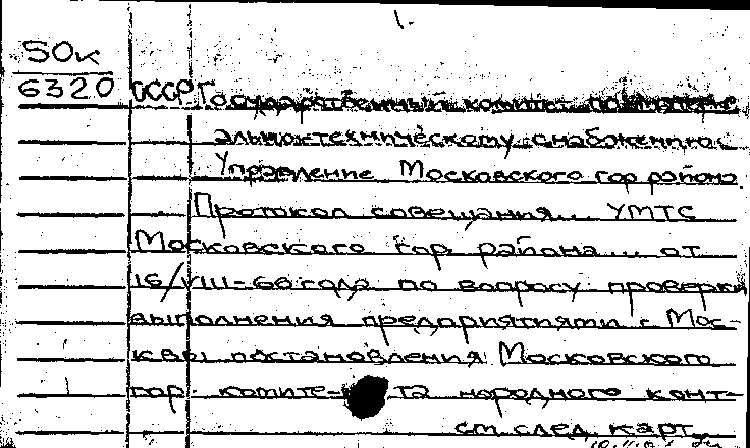 1.
50к
6320
СССР Государственный комитет по матери-
альнотехническому снабжению.
Управление Московского гор района.
Протокол совещания... УМТС
Московского гор. района... от
16/VIII-66 года по вопросу проверки
выполнения предприятиями г. Мос-
квы постановления Московского
гор. комите- та народного конт-
см след. карт.